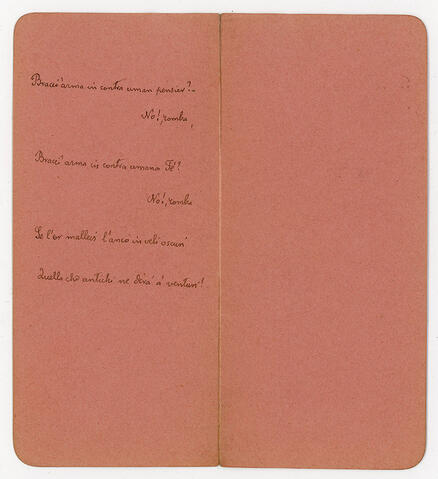 Bracci' arma in contra uman pensier? –
No!, romba,
Bracci' arma in contra umana Fé?
No!, romba
Se l'or mallevi l'anco in veli oscuri
Quello che antichi ne dirà a' venturi!